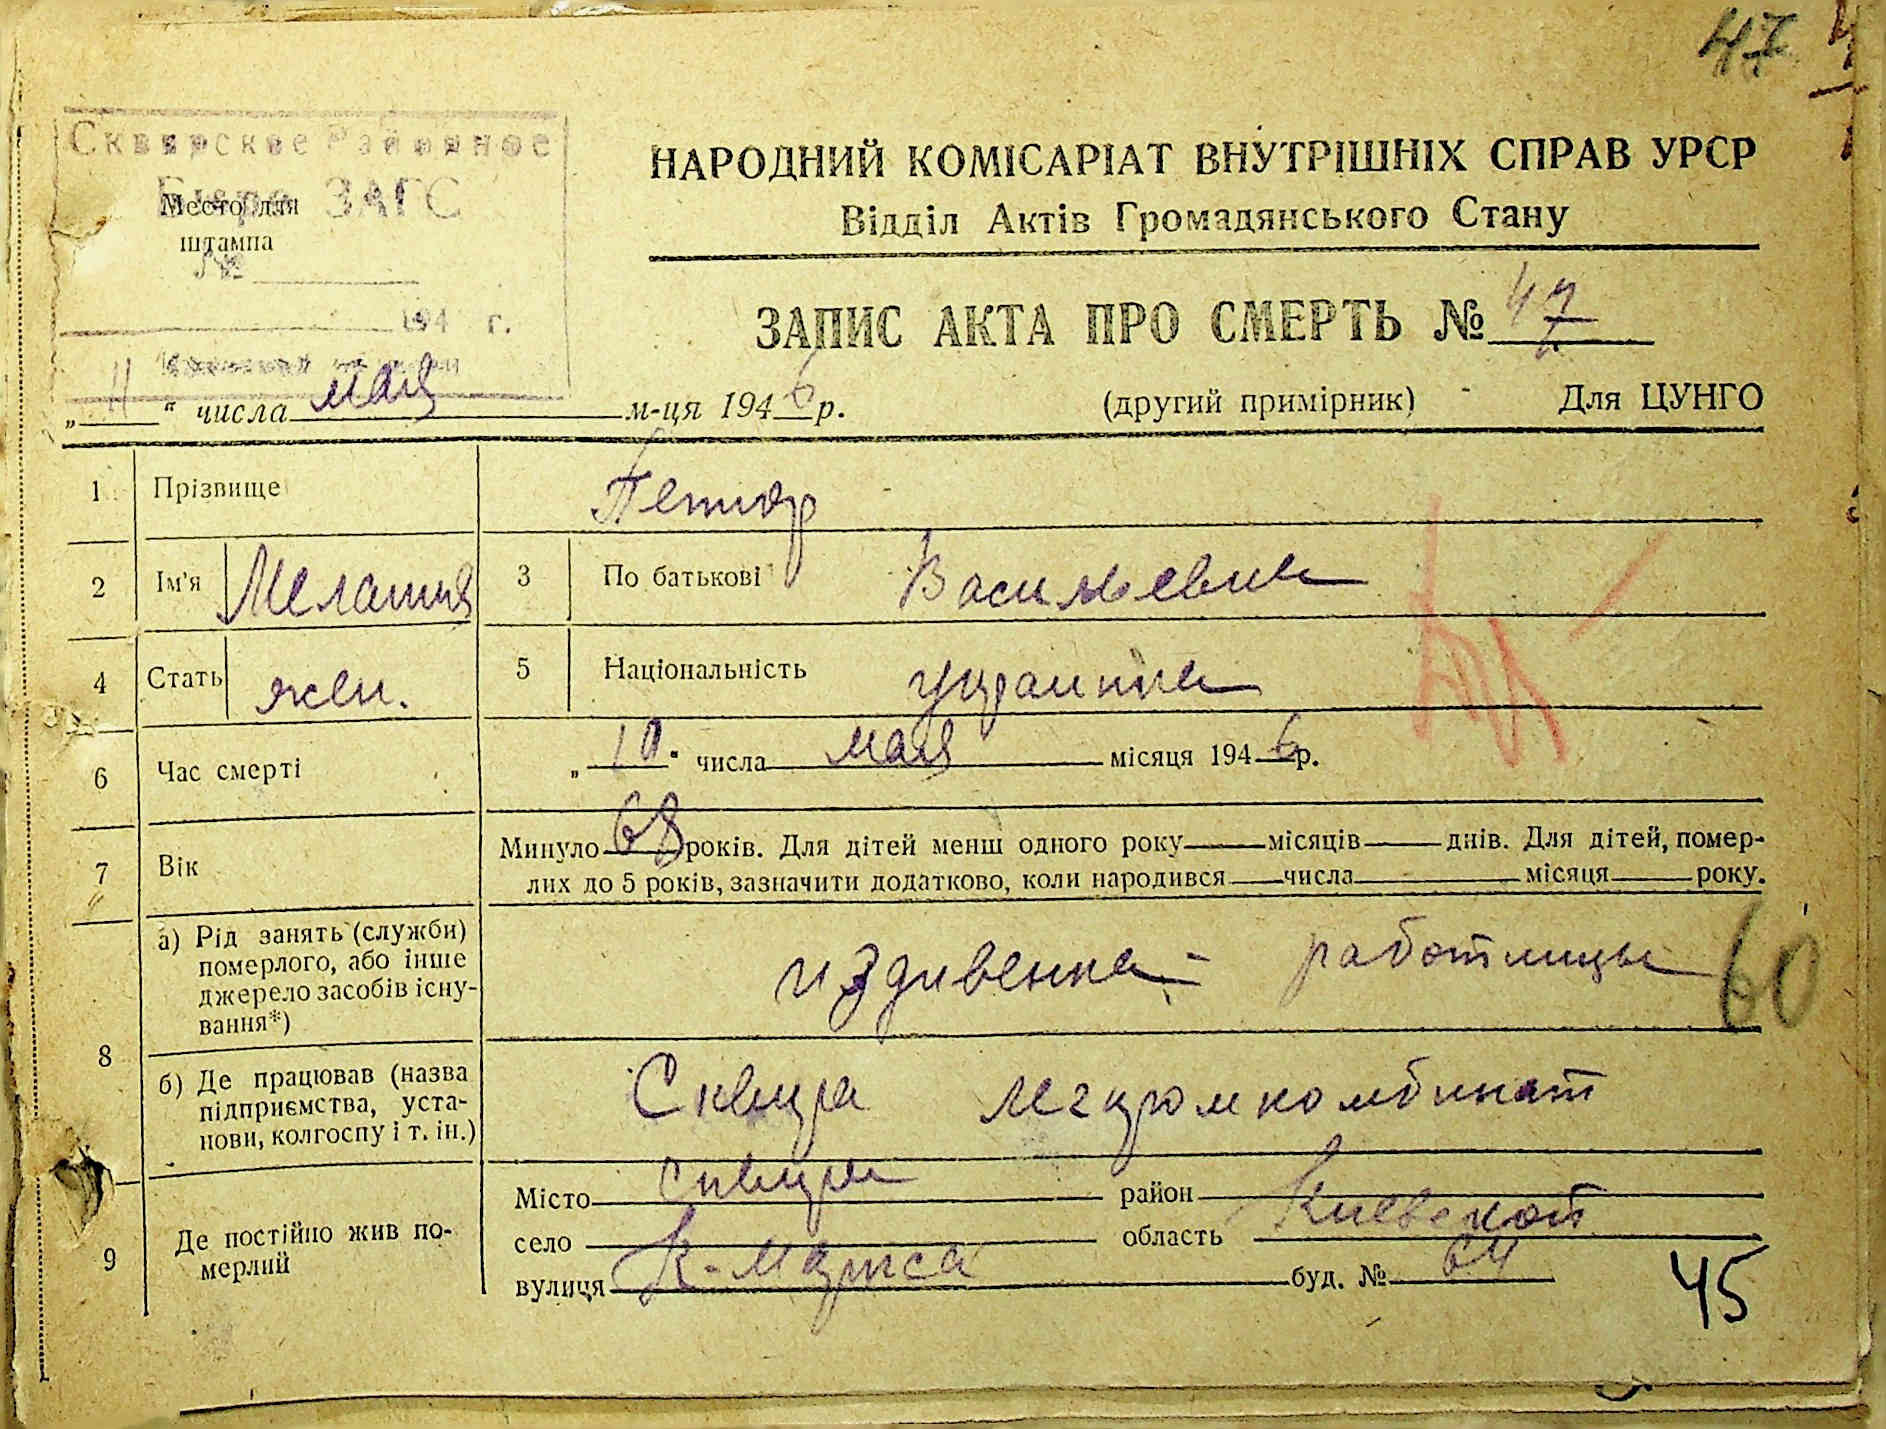 47
Сквирское Районное
Бюро ЗАГС
Место для
штампа
№
194 г.
НАРОДНИЙ КОМІСАРІАТ ВНУТРІШНІХ СПРАВ УРСР
Відділ Актів Громадянського Стану
ЗАПИС АКТА ПРО СМЕРТЬ № 47
„11“ числа мая м-ця 1946 р. (другий примірник) Для ЦУНГО
1 Прізвище
2 Ім'я Мелания 3 По батькові Васильевна
4 Стать жен. 5 Національність украинка
6 Час смерті „10“ числа мая місяця 1946 р.
7 Вік Минуло 68 років. Для дітей менш одного року місяців днів. Для дітей, помер-
лих до 5 років, зазначити додатково, коли народився числа місяця року.
8 а) Рід занять (служби)
померлого, або інше
джерело засобів існу-
вання*)
издивенка - работницы
60
б) Де працював (назва
підприємства, уста-
нови, колгоспу і т. ін.)
Сквира легпромкомбинат
9 Де постійно жив по-
мерлий
Місто Сквира район
село область Киевской
вулиця К-Маркса буд. № 64
45